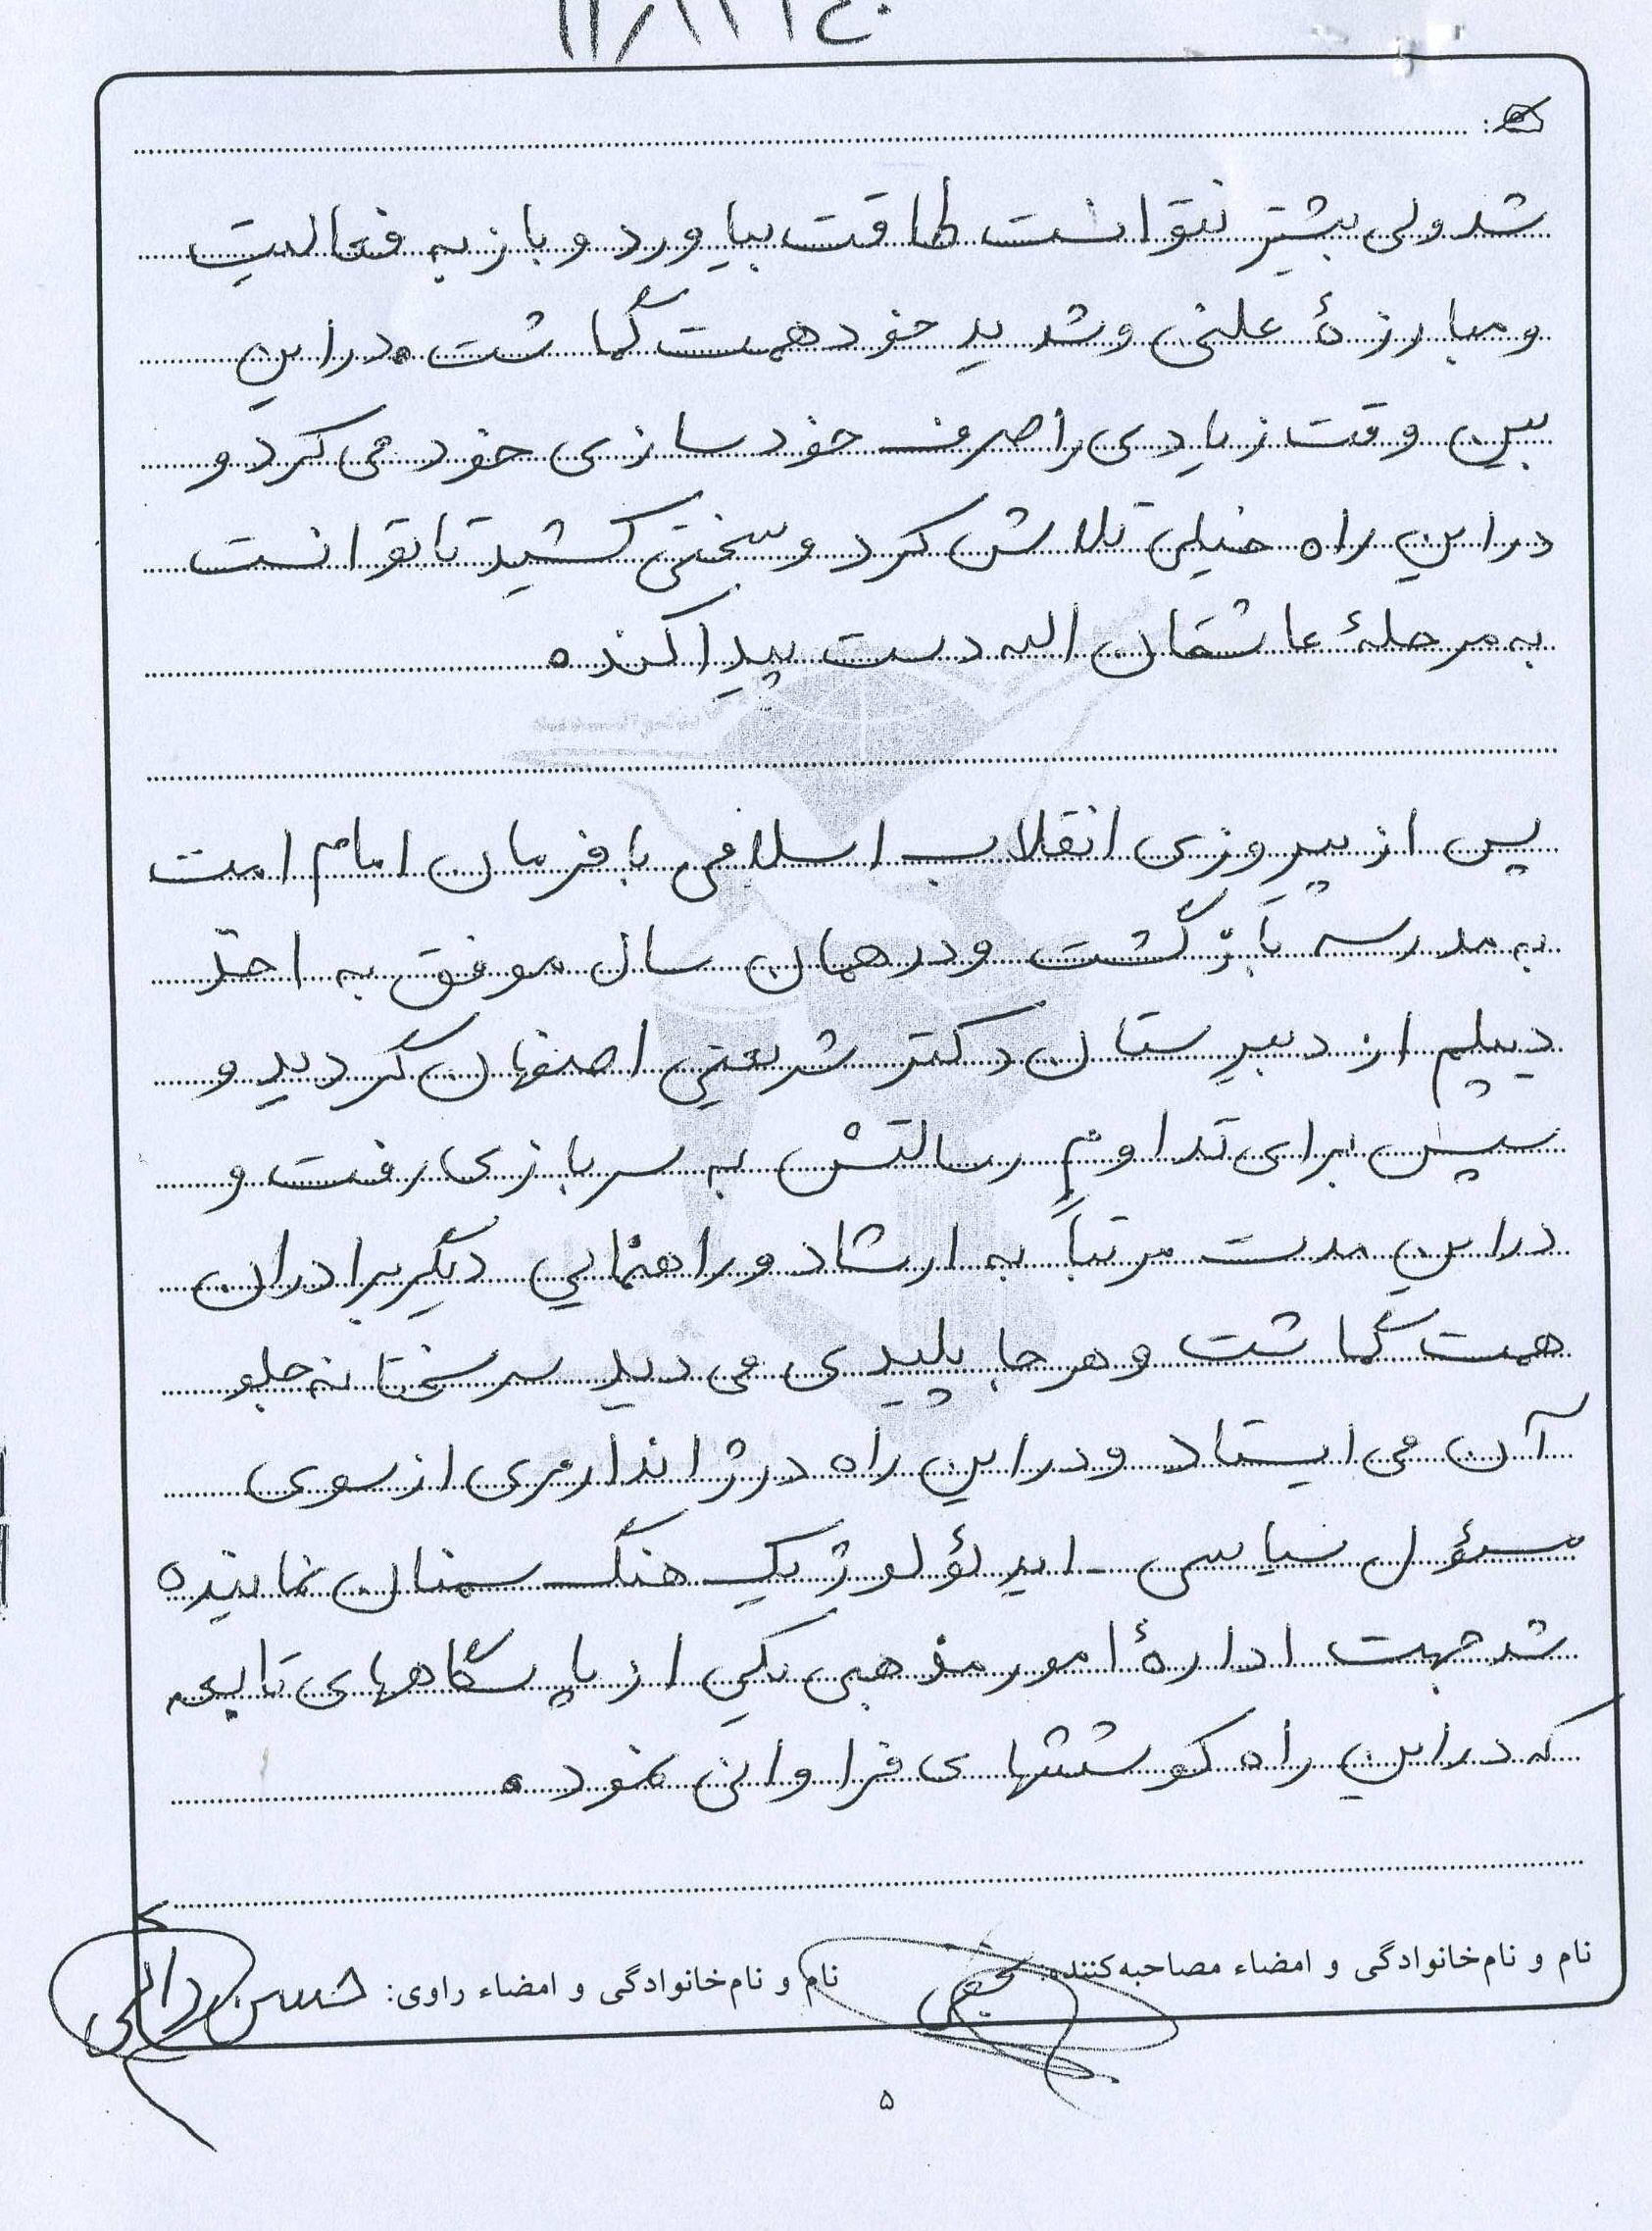 شد ولی بیشتر نتوانست طاقت بیاورد و باز به فعالیت
و مبارزهٔ علنی و شدید خود همت گماشت. در این
بین وقت زیادی را صرف خودسازی خود می کرد و
در این راه خیلی تلاش کرد و سختی کشید تا توانست
به مرحلهٔ عاشقان الله دست پیدا کند.
پس از پیروزی انقلاب اسلامی با فرمان امام امت
به مدرسه بازگشت و در همان سال موفق به اخذ
دیپلم از دبیرستان دکتر شریعتی اصفهان گردید و
سپس برای تداوم رسالتش به سربازی رفت و
در این مدت مرتباً به ارشاد و راهنمایی دیگر برادران
همت گماشت و هر جا پلیدی می دید سرسختانه جلو
آن می ایستاد و در این راه در ژاندارمری از سوی
مسؤل سیاسی - ایدئولوژیک هنگ سمنان نماینده
شد جهت ادارهٔ امور مذهبی یکی از پاسگاههای تابعه
که در این راه کوششهای فراوانی نمود.
نام و نام‌خانوادگی و امضاء مصاحبه‌کننده:
نام و نام‌خانوادگی و امضاء راوی: حسن
۵